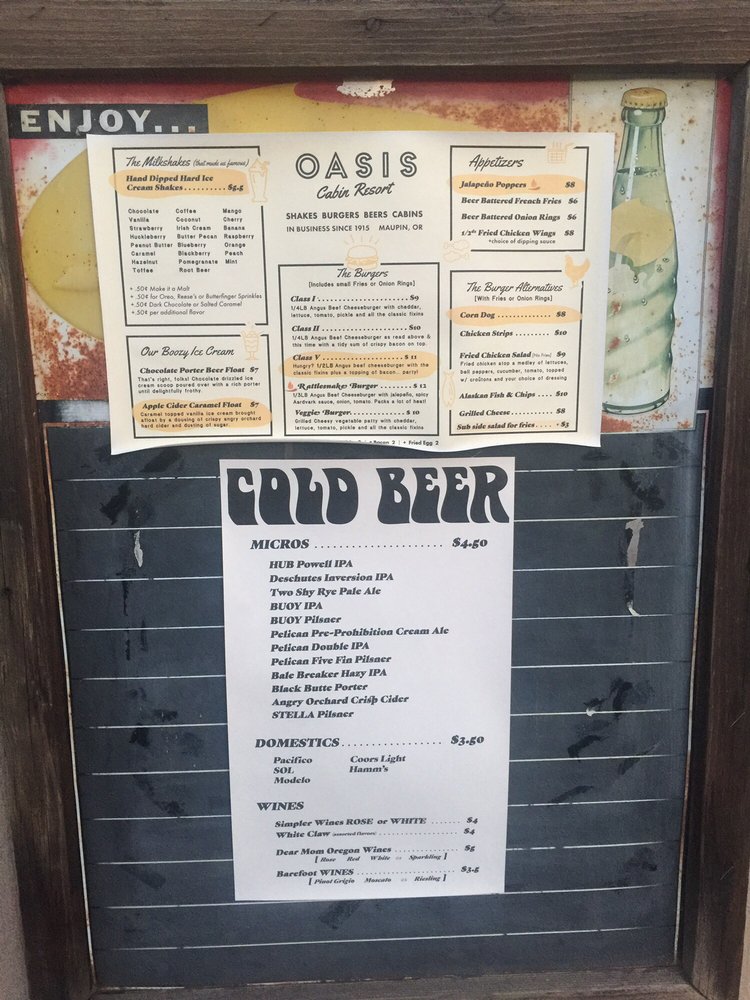 ENJOY...
The Milkshakes (that made us famous)
Hand Dipped Hard Ice
Cream Shakes .......... $5.5
Chocolate Coffee Mango
Vanilla Coconut Cherry
Strawberry Irish Cream Banana
Huckleberry Butter Pecan Raspberry
Peanut Butter Blueberry Orange
Caramel Blackberry Peach
Hazelnut Pomegranate Mint
Toffee Root Beer
+ .50¢ Make it a Malt
+ .50¢ for Oreo, Reese's or Butterfinger Sprinkles
+ .50¢ Dark Chocolate or Salted Caramel
+ .50¢ per additional flavor
Our Boozy Ice Cream
Chocolate Porter Beer Float $7
That's right, folks! Chocolate drizzled ice
cream scoop poured over with a rich porter
until delightfully frothy.
Apple Cider Caramel Float $7
Caramel topped vanilla ice cream brought
afloat by a dousing of crispy angry orchard
hard cider and dusting of sugar.
OASIS
Cabin Resort
SHAKES BURGERS BEERS CABINS
IN BUSINESS SINCE 1915 MAUPIN, OR
The Burgers
[Includes small Fries or Onion Rings]
Class I .......... $9
1/4LB Angus Beef Cheeseburger with cheddar,
lettuce, tomato, pickle and all the classic fixins
Class II .......... $10
1/4LB Angus Beef Cheeseburger as read above &
this time with a tidy sum of crispy bacon on top
Class V .......... $ 11
Hungry? 1/2LB Angus beef cheeseburger with the
classic fixins plus a topping of bacon... party!
Rattlesnake Burger .......... $ 12
1/3LB Angus Beef Cheeseburger with jalapeño, spicy
Aardvark sauce, onion, tomato. Packs a lot of heat!
Veggie Burger .......... $ 10
Grilled Cheesy vegetable patty with cheddar,
lettuce, tomato, pickle and all the classic fixins
Bacon 2 | + Fried Egg 2
Appetizers
Jalapeño Poppers $8
Beer Battered French Fries $6
Beer Battered Onion Rings $6
1/2lb Fried Chicken Wings $8
*choice of dipping sauce
The Burger Alternatives
[With Fries or Onion Rings]
Corn Dog .......... $8
Chicken Strips .......... $10
Fried Chicken Salad [No Fries] $9
Fried chicken atop a medley of lettuces,
bell peppers, cucumber, tomato, topped
w/ croûtons and your choice of dressing
Alaskan Fish & Chips .... $10
Grilled Cheese .......... $8
Sub side salad for fries ..... + $3
COLD BEER
MICROS .......... $4.50
HUB Powell IPA
Deschutes Inversion IPA
Two Shy Rye Pale Ale
BUOY IPA
BUOY Pilsner
Pelican Pre-Prohibition Cream Ale
Pelican Double IPA
Pelican Five Fin Pilsner
Bale Breaker Hazy IPA
Black Butte Porter
Angry Orchard Crisp Cider
STELLA Pilsner
DOMESTICS .......... $3.50
Pacifico Coors Light
SOL Hamm's
Modelo
WINES
Simpler Wines ROSE or WHITE ....... $4
White Claw (assorted flavors) .......... $4
Dear Mom Oregon Wines .......... $5
[ Rose Red White or Sparkling ]
Barefoot WINES .......... $3.5
[ Pinot Grigio Moscato or Riesling ]